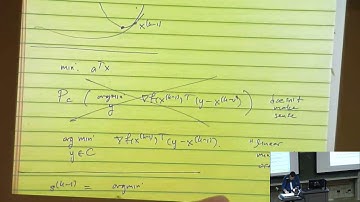 x^(k-1)
min. a^T x
P_C ( argmin_y ∇f(x^(k-1))^T (y - x^(k-1)) ) doesn't make sense
argmin_{y∈C} ∇f(x^(k-1))^T (y - x^(k-1)). "linear
s^(k-1) = argmin